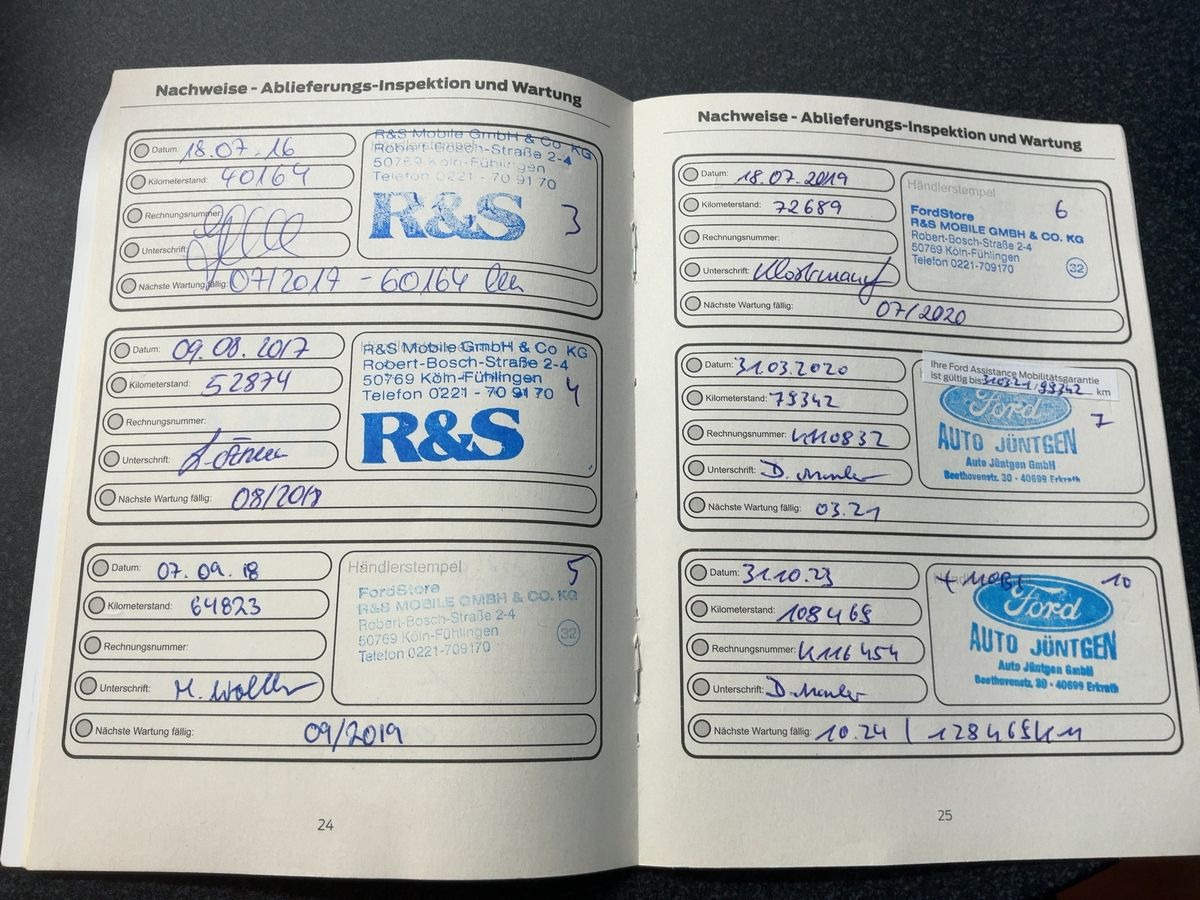 Nachweise - Ablieferungs-Inspektion und Wartung
Datum: 18.07.16
Kilometerstand: 40164
Rechnungsnummer:
Unterschrift:
Nächste Wartung fällig: 07/2017 - 60164 km
R&S Mobile GmbH & Co KG
Robert-Bosch-Straße 2-4
50769 Köln-Fühlingen
Telefon 0221 - 70 91 70
R&S 3
Datum: 09.08.2017
Kilometerstand: 52874
Rechnungsnummer:
Unterschrift:
Nächste Wartung fällig: 08/2018
R&S Mobile GmbH & Co KG
Robert-Bosch-Straße 2-4
50769 Köln-Fühlingen
Telefon 0221 - 70 91 70 4
R&S
Datum: 07.09.18
Kilometerstand: 64823
Rechnungsnummer:
Unterschrift:
Nächste Wartung fällig: 09/2019
Händlerstempel 5
FordStore
R&S MOBILE GMBH & CO. KG
Robert-Bosch-Straße 2-4
50769 Köln-Fühlingen
Telefon 0221-709170
32
24
Nachweise - Ablieferungs-Inspektion und Wartung
Datum: 18.07.2019
Kilometerstand: 72689
Rechnungsnummer:
Unterschrift:
Nächste Wartung fällig: 07/2020
Händlerstempel 6
FordStore
R&S MOBILE GMBH & CO. KG
Robert-Bosch-Straße 2-4
50769 Köln-Fühlingen
Telefon 0221-709170
32
Datum: 31.03.2020
Kilometerstand: 79342
Rechnungsnummer: K110832
Unterschrift:
Nächste Wartung fällig: 03.21
Ihre Ford Assistance Mobilitätsgarantie
ist gültig bis 310321/99342 km
Ford 7
AUTO JÜNTGEN
Auto Jüntgen GmbH
Beethovenstz. 30 - 40699 Erkrath
Datum: 31.10.23
Kilometerstand: 108469
Rechnungsnummer: K116454
Unterschrift:
Nächste Wartung fällig: 10.24 | 128469km
+ MOBI 10
Ford
AUTO JÜNTGEN
Auto Jüntgen GmbH
Beethovenstz. 30 - 40699 Erkrath
25